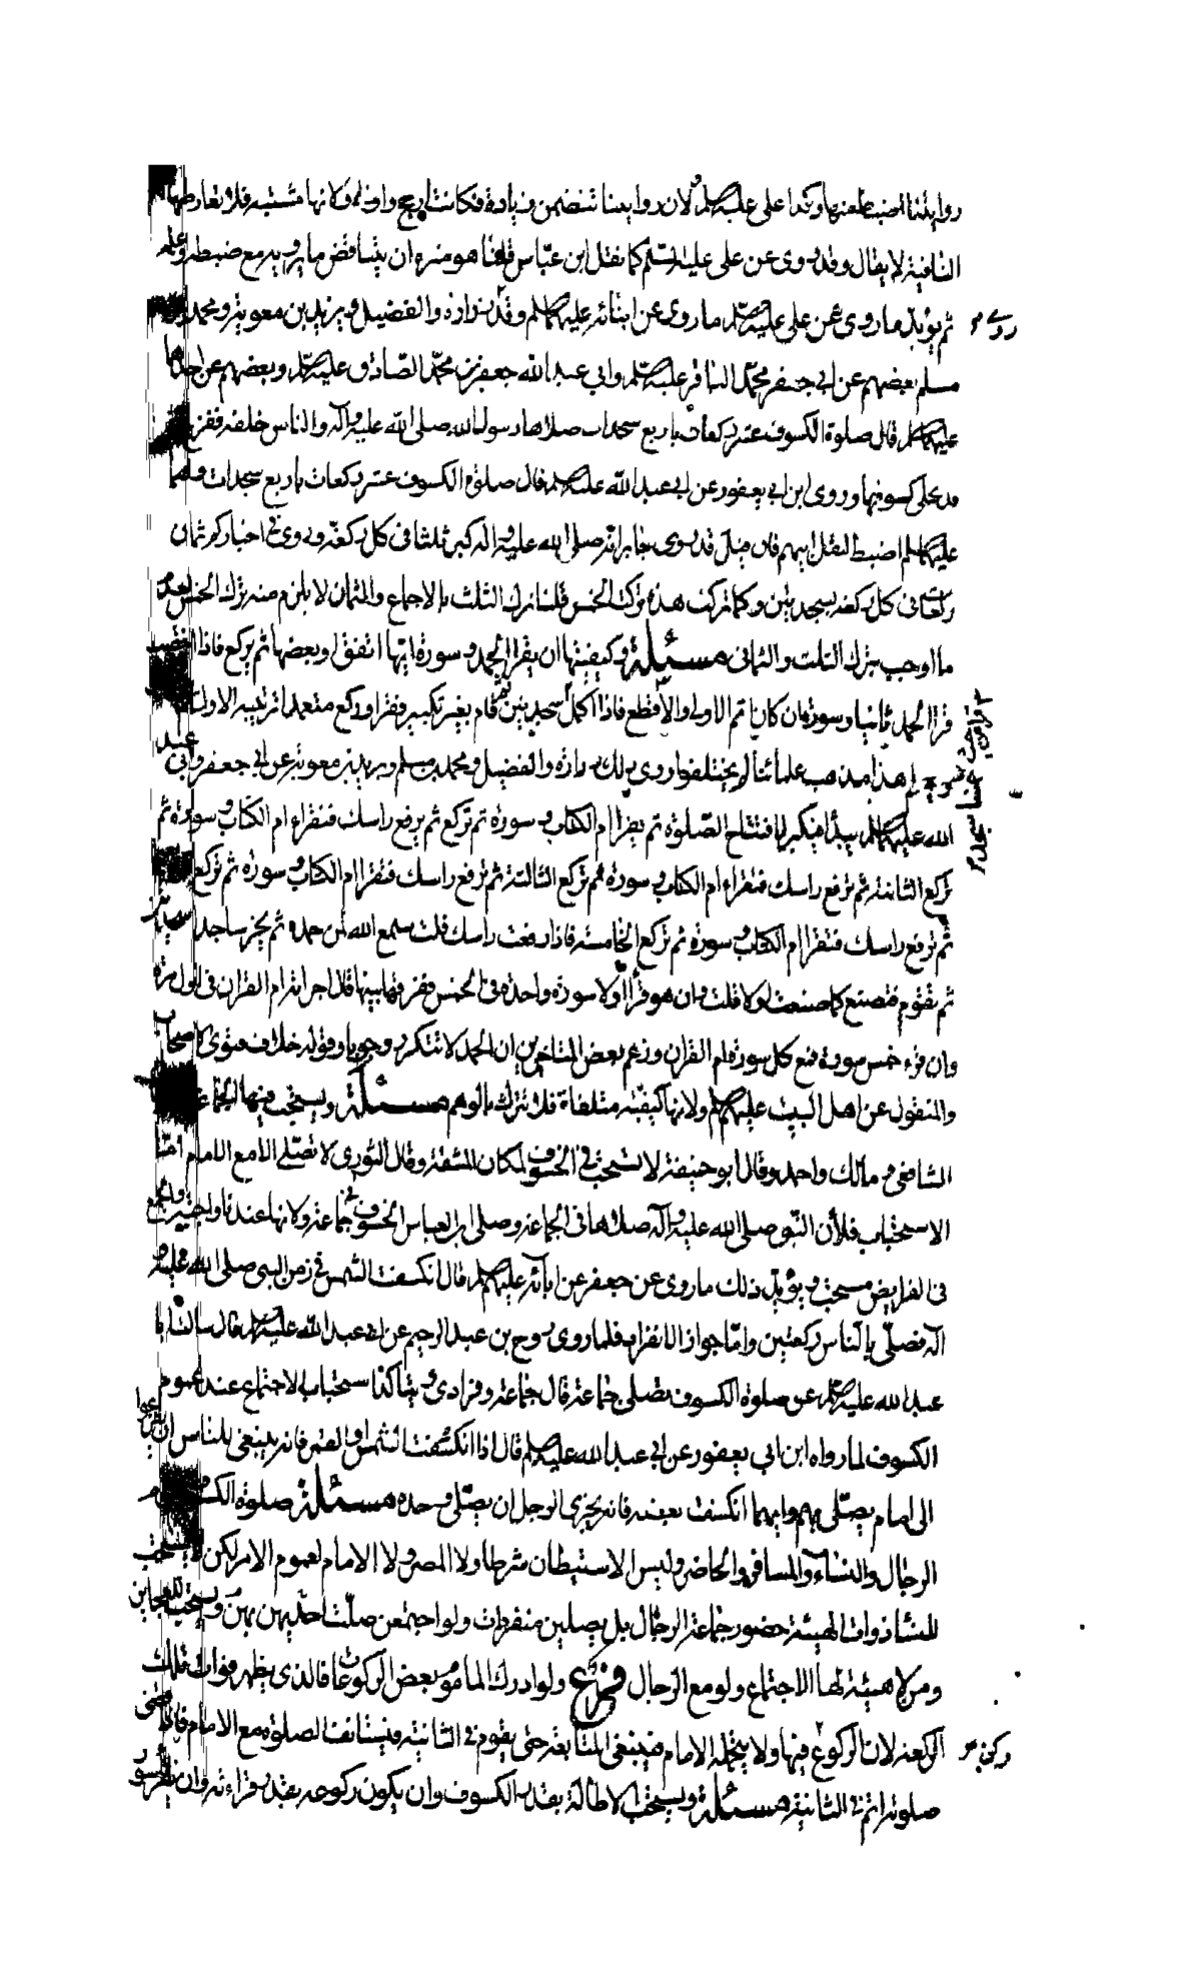 روايتنا لضبطهنها وكذا على عليه السلم لان روايتنا تتضمن زيادة فكانت ارجح واولى ولانها مثبتة فلا تعارضها
النافية لا يقال وقد روى عن على عليه السلم كما نقل ابن عباس قلنا هو منزه ان يتناقض ما يرويه مع ضبطه وعلمه
ثم يؤيد ما روى عن على عليه السلم ما روى عن ابنائه عليهم السلم وقد روى زرارة والفضيل وبريد بن معوية ومحمد بن
مسلم بعضهم عن ابي جعفر محمد الباقر عليه السلم وابي عبد الله جعفر بن محمد الصادق عليه السلم وبعضهم عن احدهما
عليهما السلم قال صلوة الكسوف عشر ركعات باربع سجدات صلاها رسول الله صلى الله عليه وآله والناس خلفه ففرغ
وقد تجلى كسوفها وروى ابن ابي يعفور عن ابي عبد الله عليه السلم قال صلوة الكسوف عشر ركعات باربع سجدات وهما
عليهما السلم اضبط لنقل ابيهم فان قيل قد روى جابر انه صلى الله عليه واله كبر ثلثا فى كل ركعة وروى فى اخباركم ثمان
ركعات فى كل ركعة بسجدتين وكما تركت هذه تركت الخمس قلنا نترك الثلث بالاجماع والثمان لا يلزم منه ترك الخمس لعدم
ما اوجب بترك الثلث والثمانى مسئلة وكيفيتها ان يقرا الحمد وسورة ايها اتفق او بعضها ثم يركع فاذا انتصب
قرا الحمد ثانيا وسورة ان كان اتم الاولى والا قطع فاذا اكمل سجدتين قام بغير تكبير فقرا وركع معتمدا ترتيبه الاول
هذا مذهب علمائنا لم يختلفوا روى ذلك زرارة والفضيل ومحمد بن مسلم وبريد بن معوية عن ابي جعفر وابي عبد
الله عليهما السلم يبدأ فيكبر لافتتاح الصلوة ثم يقرا ام الكتاب وسورة ثم تركع ثم ترفع راسك فتقرا ام الكتاب وسورة ثم
تركع الثانية ثم ترفع راسك فتقراء ام الكتاب وسورة ثم تركع الثالثة ثم ترفع راسك فتقرا ام الكتاب وسورة ثم تركع
ثم ترفع راسك فتقرا ام الكتاب وسورة ثم تركع الخامسة فاذا رفعت راسك قلت سمع الله لمن حمده ثم تخر ساجدا سجدتين
ثم تقوم فتصنع كما صنعت اولا قلت وان هو قرأ اولا سورة واحدة فى الخمس ففرقها بينها قال اجزاته ام القران فى اول مرة
وان قرء خمس سورة فمع كل سورة ام القران وزعم بعض المتاخرين ان الحمد لا تتكرر وجوبا وقوله خلاف فتوى الاصحاب
والمنقول عن اهل البيت عليهم السلم ولانها كيفية متلقاة فلا تترك بالوهم مسئلة ويستحب فيها الجماعة
الشافعى ومالك واحمد وقال ابو حنيفة لا تستحب فى الخسوف لمكان المشقة وقال الثورى لا تصلى الا مع الامام امتا
الاستحباب فلأن النبى صلى الله عليه وآله صلاها فى الجماعة وصلى ابن العباس الخسوف فى جماعة ولانها عندنا واجبة والجمع
فى الفرايض مستحب ويؤيد ذلك ما روى عن جعفر عن ابآئه عليهم السلم قال انكسفت الشمس فى زمن النبى صلى الله عليه و
آله فصلى بالناس ركعتين واما جواز الانفراد فلما روى روح بن عبد الرحيم عن ابى عبد الله عليه السلم قال سالت ابا
عبد الله عليه السلم عن صلوة الكسوف تصلى جماعة قال جماعة وفرادى ويتاكد استحباب الاجتماع عند عموم
الكسوف لما رواه ابن ابي يعفور عن ابي عبد الله عليه السلم قال اذا انكسفت الشمس او القمر فانه ينبغى للناس ان يفزعوا
الى امام يصلى بهم وايهما انكسفت بعضه فانه يجزى الرجل ان يصلى وحده مسئلة صلوة الكسوف
الرجال والنساء والمسافر والحاضر وليس الاستيطان شرطا ولا المصر ولا الامام لعموم الامر لكن لا يستحب
للنساء ذوات الهيئة حضور جماعة الرجال بل يصلين منفردات ولو اجتمعن صلت احديهن بهن ويستحب للعجايز
ومن لا هيئة لها الاجتماع ولو مع الرجال فرع ولو ادرك الماموم بعض الركوعات فالذى يظهر فوات تلك
الركعة لان الركوع فيها ولا يتحمله الامام فينبغى المتابعة حتى يقوم فى الثانية فيستانف الصلوة مع الامام فاذا قضى
صلوته اتم فى الثانية مسئلة ويستحب الاطالة بقدر الكسوف وان يكون ركوعه بقدر قراءته وان يقرا السور